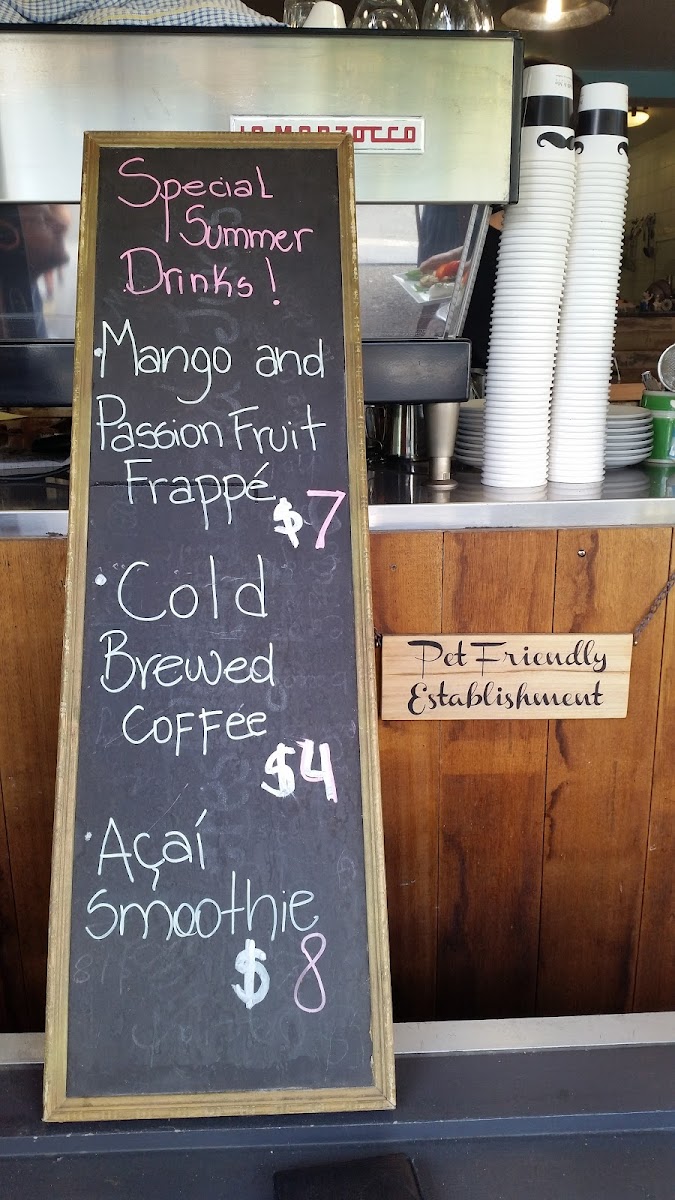 LA MARZOCCO
Special
Summer
Drinks!
·Mango and
Passion Fruit
Frappé
$7
·Cold
Brewed
COFFee
$4
·Açaí
smoothie
$8
Pet Friendly
Establishment